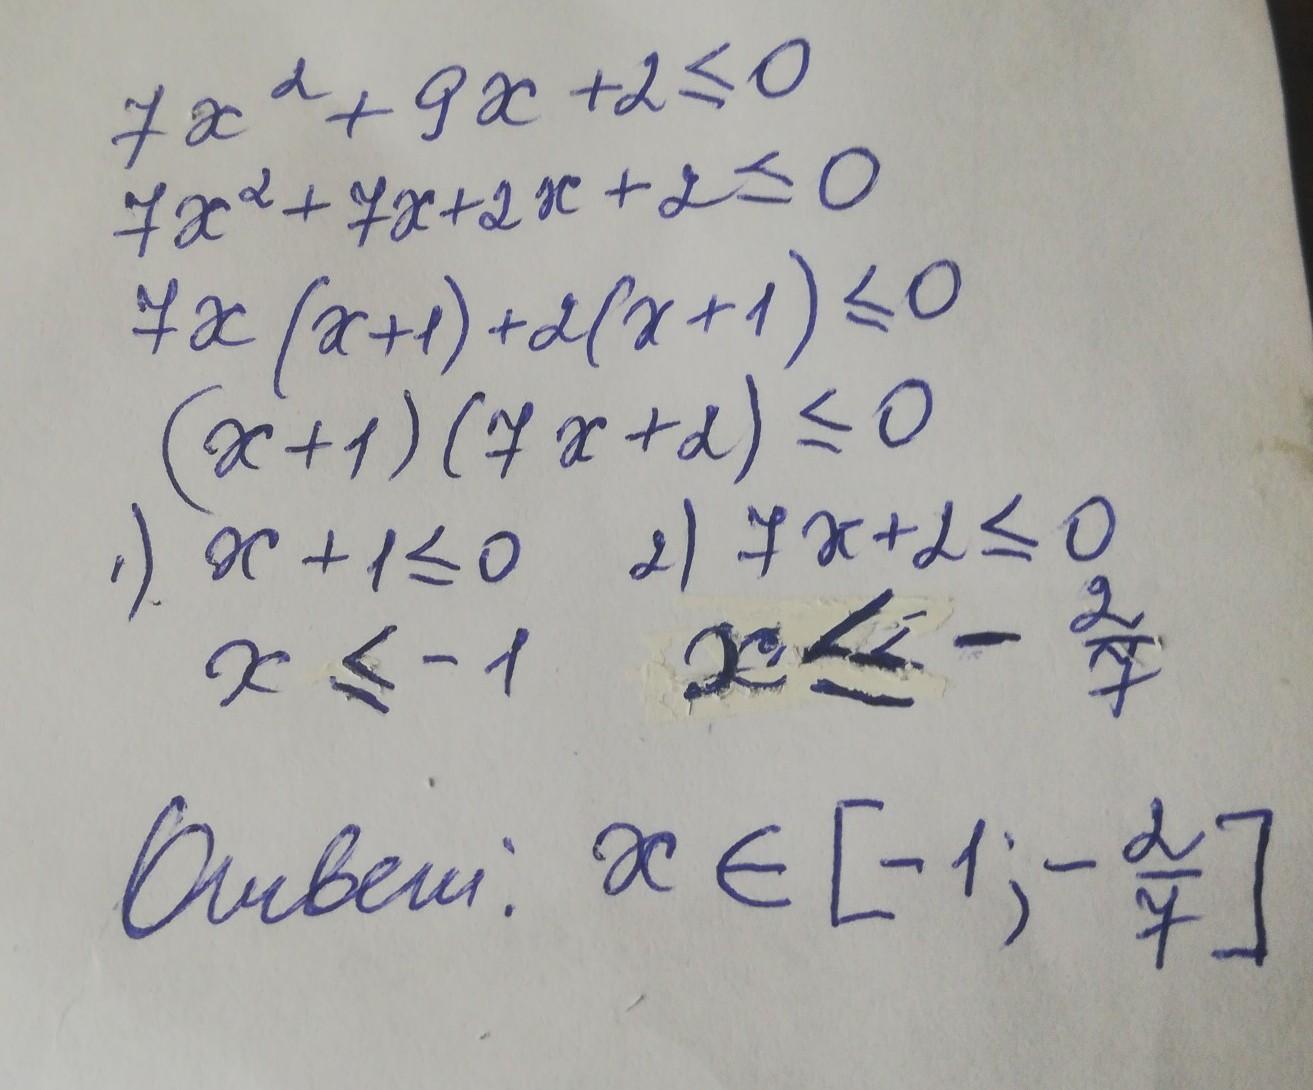 7x² + 9x + 2 ≤ 0
7x² + 7x + 2x + 2 ≤ 0
7x (x+1) + 2(x+1) ≤ 0
(x+1) (7x+2) ≤ 0
1) x + 1 ≤ 0 2) 7x + 2 ≤ 0
x ≤ -1 x ≤ - 2/7
Ответ: x ∈ [-1; - 2/7]